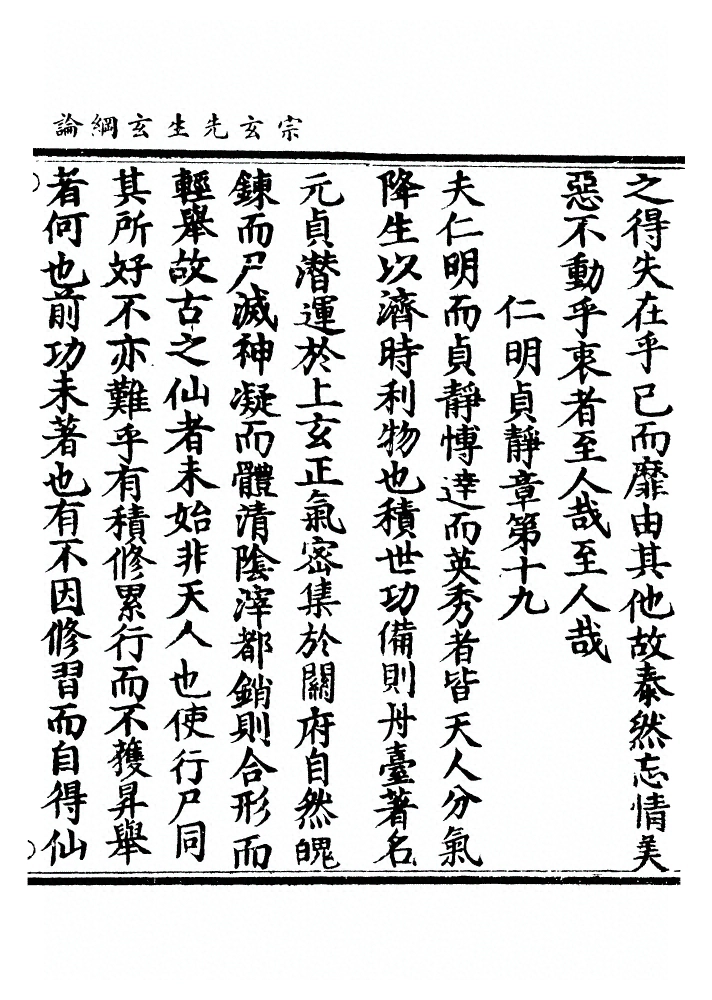 宗玄先生玄綱論
之得失在乎已而靡由其他故泰然忘情美
惡不動乎衷者至人哉至人哉
仁明貞靜章第十九
夫仁明而貞靜愽達而英秀者皆天人分氣
降生以濟時利物也積世功備則丹臺著名
元貞潛運於上玄正氣密集於關府自然魄
鍊而尸滅神凝而體清陰滓都銷則合形而
輕舉故古之仙者未始非天人也使行尸同
其所好不亦難乎有積修累行而不獲昇舉
者何也前功未著也有不因修習而自得仙